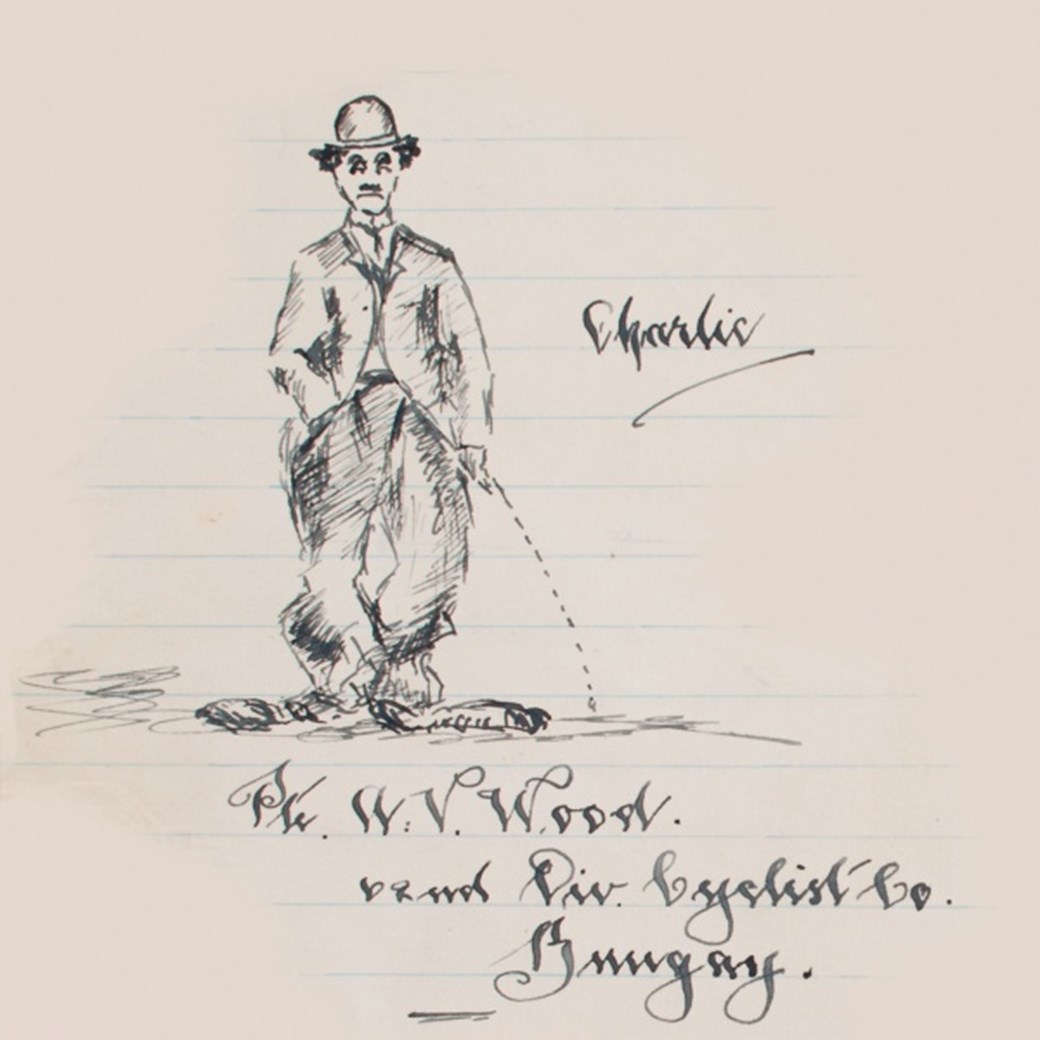 Charlie
Pte. Wood.
62nd Div. Cyclist Co.
Bungay.